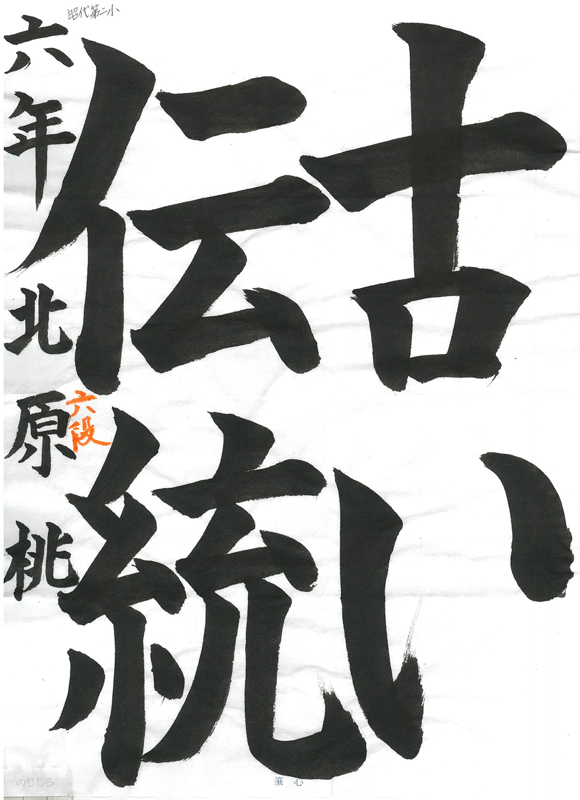 古い
伝統
昭代第二小
六年 北原桃
六段
筆心
のりしろ